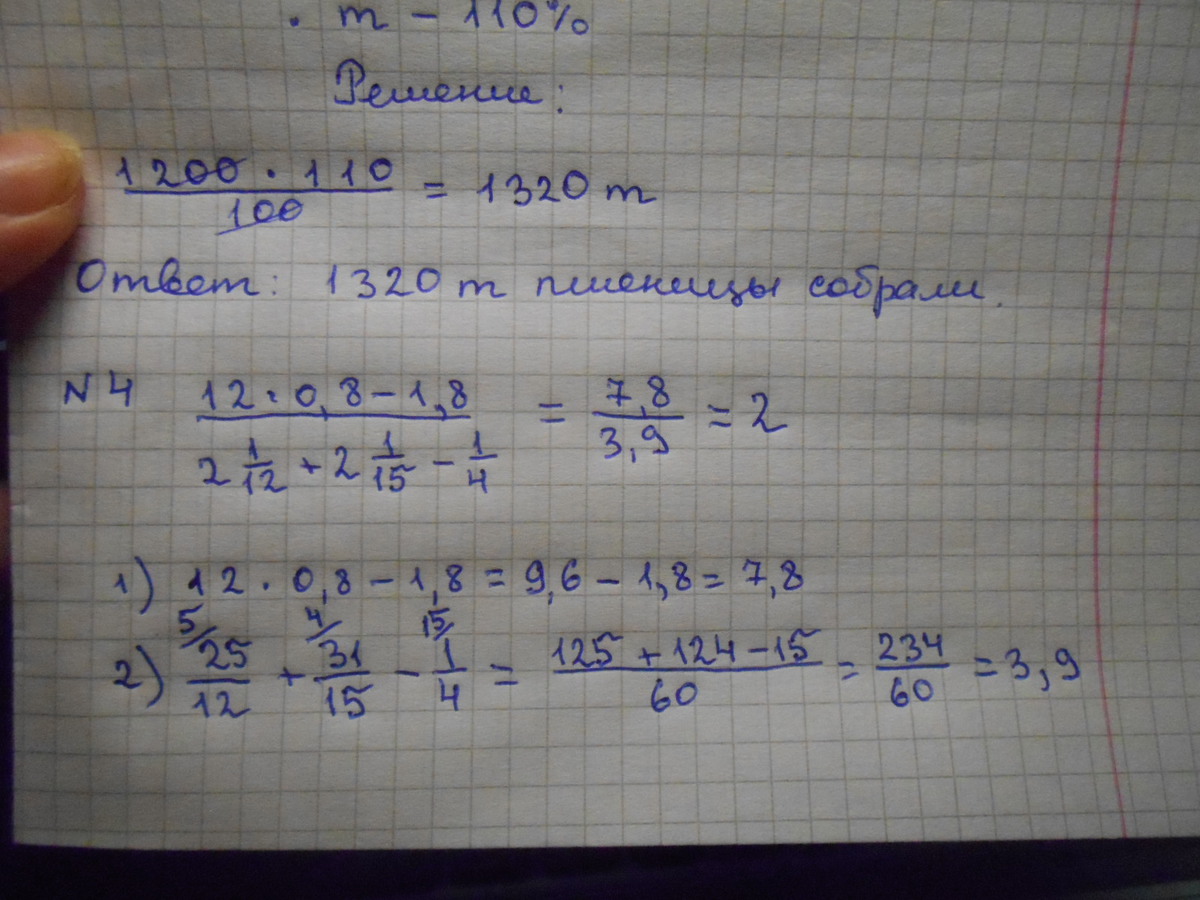 . т – 110%
Решение:
1200 · 110 / 100 = 1320 т
Ответ: 1320 т пшеницы собрали.
N 4 (12 · 0,8 – 1,8) / (2 1/12 + 2 1/15 – 1/4) = 7,8 / 3,9 = 2
1) 12 · 0,8 – 1,8 = 9,6 – 1,8 = 7,8
5/ 4/ 15/
2) 25/12 + 31/15 – 1/4 = (125 + 124 – 15) / 60 = 234/60 = 3,9